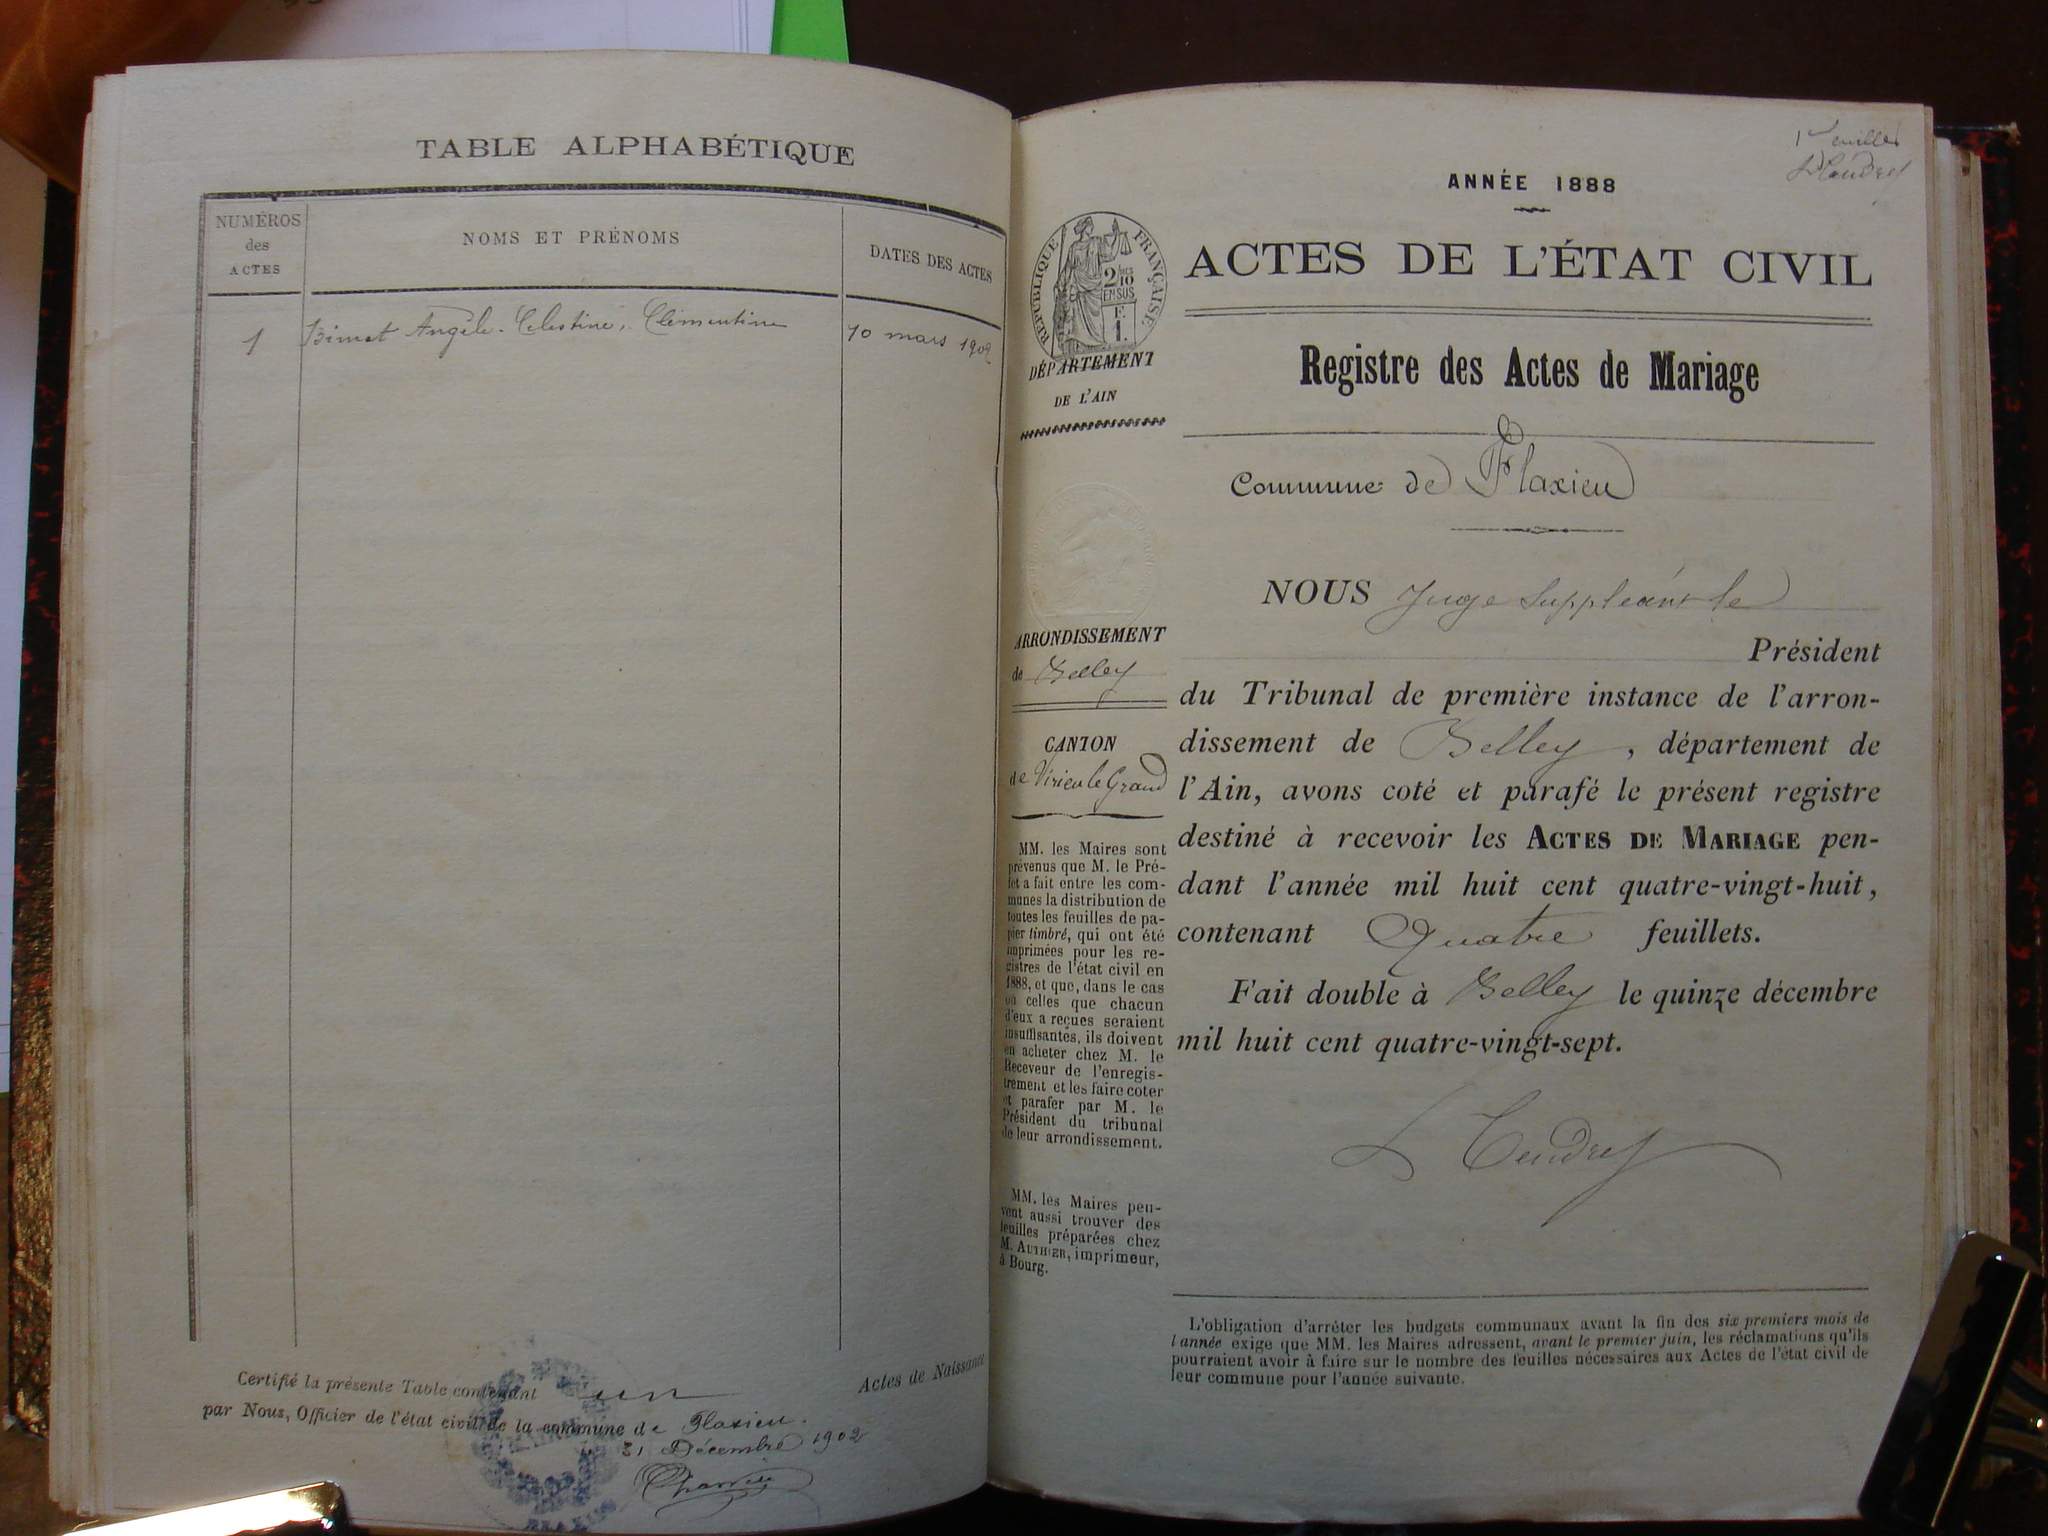 TABLE ALPHABÉTIQUE
NUMÉROS
des
ACTES
NOMS ET PRÉNOMS
DATES DES ACTES
1
Binet Angèle Célestine Clémentine
10 mars 1902
Certifié la présente Table contenant un Actes de Naissance
par Nous, Officier de l'état civil de la commune de Flaxieu.
31 Décembre 1902
1r feuillet
ANNÉE 1888
RÉPUBLIQUE FRANÇAISE
2/10
EN SUS
F.
1.
ACTES DE L'ÉTAT CIVIL
DÉPARTEMENT
DE L'AIN
Registre des Actes de Mariage
Commune de Flaxieu
ARRONDISSEMENT
de Belley
CANTON
de Virieu le Grand
MM. les Maires sont
prévenus que M. le Pré-
fet a fait entre les com-
munes la distribution de
toutes les feuilles de pa-
pier timbré, qui ont été
imprimées pour les re-
gistres de l'état civil en
1888, et que, dans le cas
où celles que chacun
d'eux a reçues seraient
insuffisantes, ils doivent
en acheter chez M. le
Receveur de l'enregis-
trement et les faire coter
et parafer par M. le
Président du tribunal
de leur arrondissement.
MM. les Maires peu-
vent aussi trouver des
feuilles préparées chez
M. AUTHIER, imprimeur,
à Bourg.
NOUS Juge Suppléant le
Président
du Tribunal de première instance de l'arron-
dissement de Belley, département de
l'Ain, avons coté et parafé le présent registre
destiné à recevoir les ACTES DE MARIAGE pen-
dant l'année mil huit cent quatre-vingt-huit,
contenant Quatre feuillets.
Fait double à Belley le quinze décembre
mil huit cent quatre-vingt-sept.
L'obligation d'arrêter les budgets communaux avant la fin des six premiers mois de
l'année exige que MM. les Maires adressent, avant le premier juin, les réclamations qu'ils
pourraient avoir à faire sur le nombre des feuilles nécessaires aux Actes de l'état civil de
leur commune pour l'année suivante.